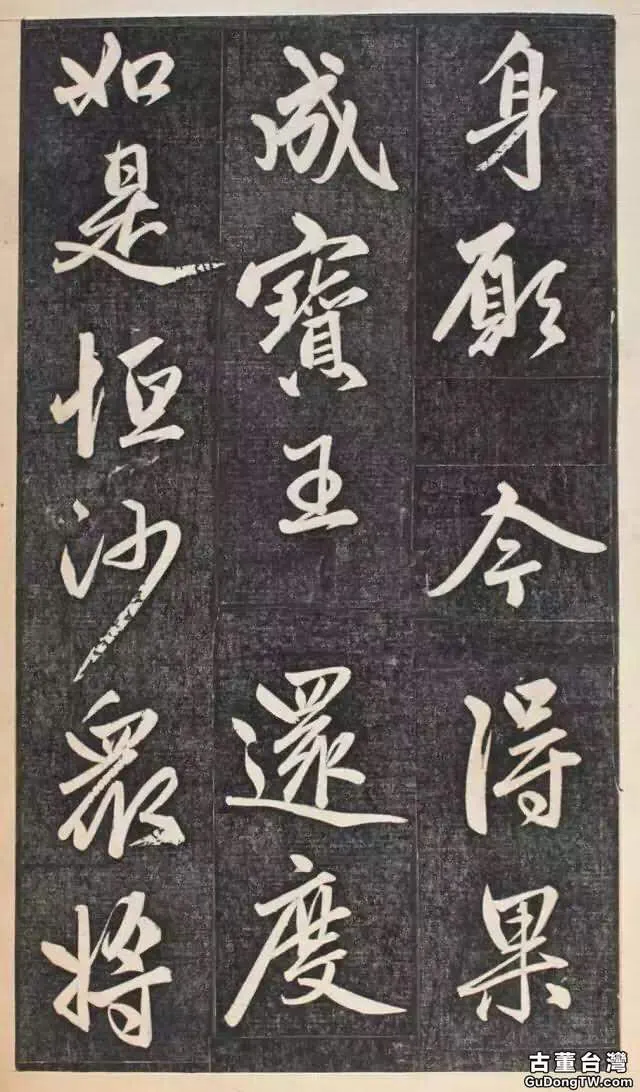 身願今得果
成寶王還度
如是恒沙眾將
古董台灣
GuDongTW.com